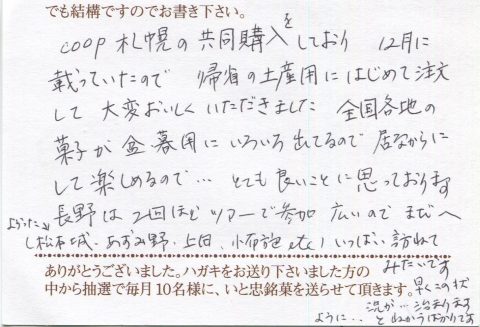 でも結構ですのでお書き下さい。
coop札幌の共同購入をしており 12月に
載っていたので 帰省の土産用にはじめて注文
して 大変おいしくいただきました 全国各地の
菓子が盆・暮用にいろいろ出てるので 居ながらに
して楽しめるので… とても良いことに思っております
長野は2回ほどツアーで参加 広いので まだへ
(松本城・あずみ野・上田・小布施 etc) いっぱい訪ねて
みたいです
ありがとうございました。ハガキをお送り下さいました方の
中から抽選で毎月10名様に、いと忠銘菓を送らせて頂きます。
早くこの状
況が…治まります
ように… とねがうばかりです